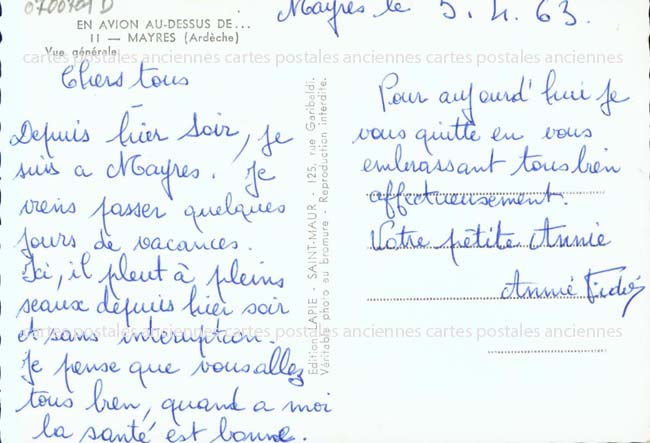 0700701 D
EN AVION AU-DESSUS DE...
11 — MAYRES (Ardèche)
Vue générale
Mayres le 5.4.63.
cartes postales anciennes cartes postales anciennes cartes postales anciennes
Chers tous
Depuis hier soir, je
suis a Mayres. Je
viens passer quelques
jours de vacances.
Ici, il pleut à pleins
seaux depuis hier soir
et sans interuption.
Je pense que vous allez
tous bien, quand a moi
la santé est bonne.
Edition LAPIE - SAINT-MAUR - 125, rue Garibaldi.
Véritable photo au bromure - Reproduction interdite.
Pour aujourd'hui je
vous quitte en vous
embrassant tous bien
affectueusement.
Votre petite Annie
Annie
cartes postales anciennes cartes postales anciennes cartes postales anciennes